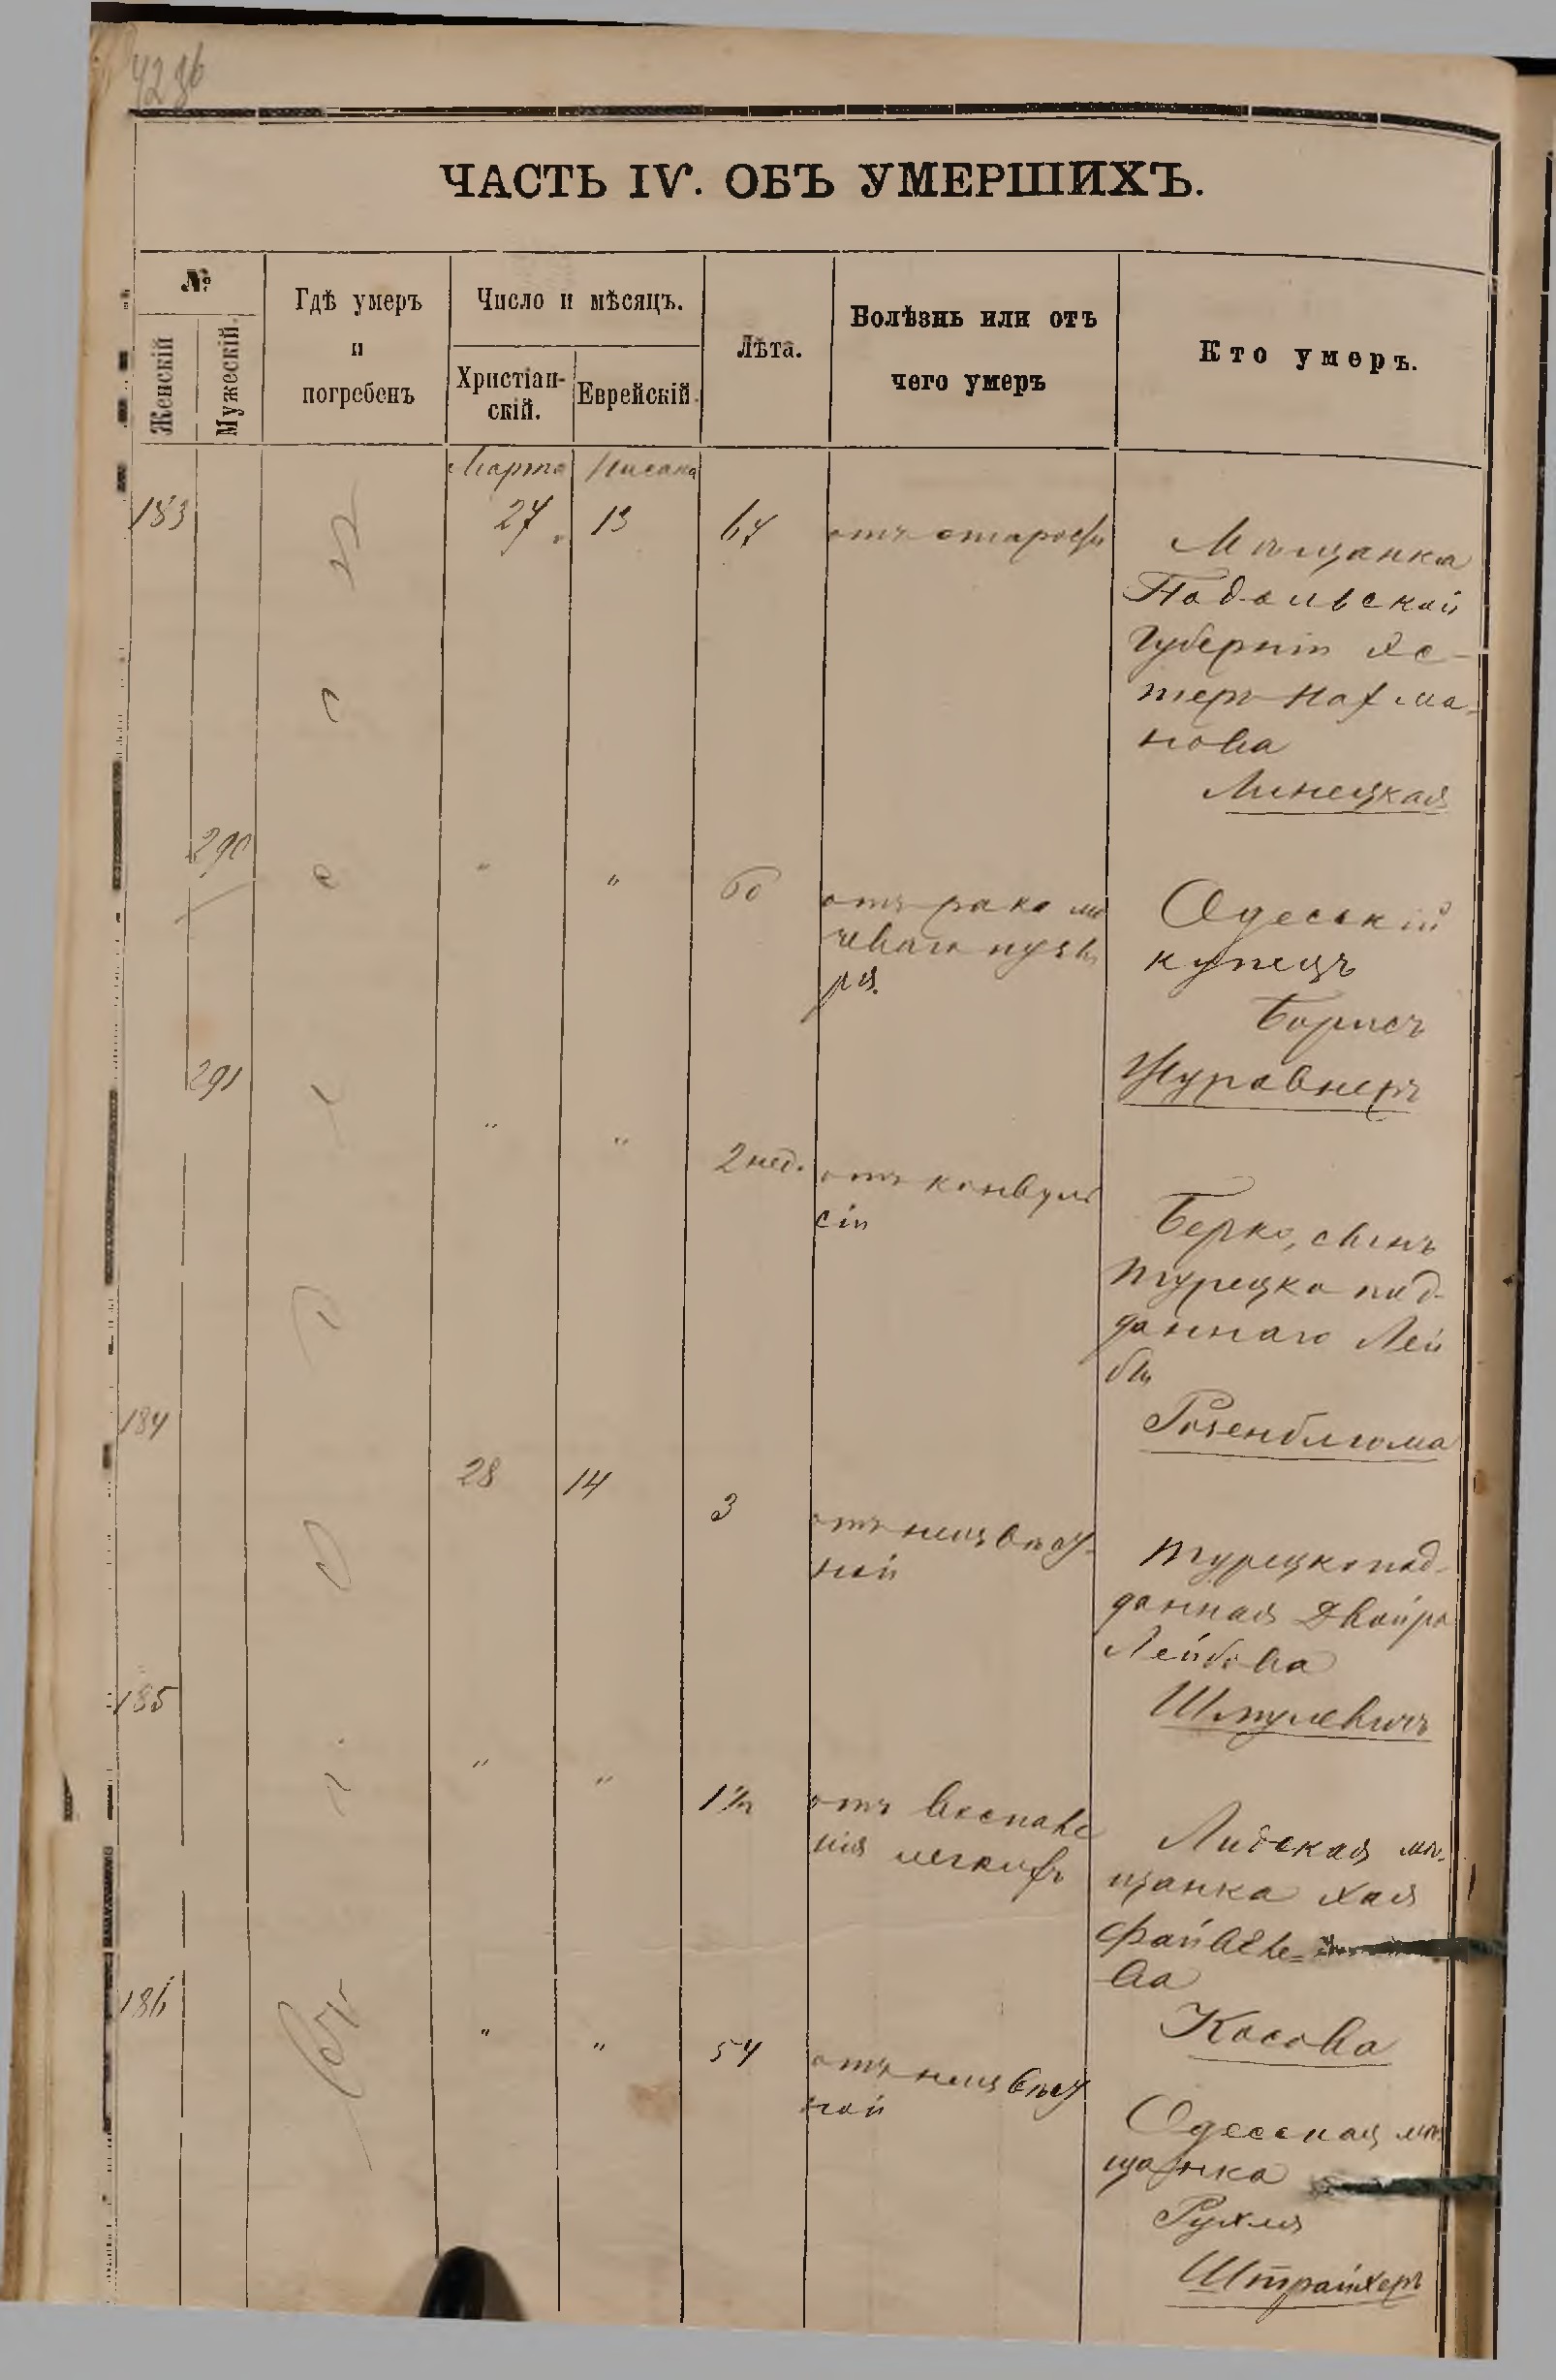 ЧАСТЬ IV. ОБЪ УМЕРШИХЪ.
№
Женскій
Мужескій.
Гдѣ умеръ
и
погребенъ
Число и мѣсяцъ.
Христіан-
скій.
Еврейскій.
Лѣта.
Болѣзнь или отъ
чего умеръ
Кто умеръ.
Марта Нисана
183 27 13 67 отъ старости
Мѣщанка
Подольской
Губерніи Эс-
теръ Нахма-
нова
Линецкая
290 " " 60
отъ рака мо
чеваго пузы
ря.
Одесскій
купецъ
Борисъ
Журавнеръ
291 " " 2 нед.
отъ конвуль
сіи
Берко, сынъ
турецко под-
даннаго Лей
бы
Розенблюма
184 28 14 3
отъ неизвѣст-
ной
турецкопод-
данная Двойра
Лейбова
Шмулевичъ
185 " " 1½
отъ воспале
нія легкихъ
Лидская мѣ-
щанка Хая
Файвеле-
ва
Косова
186 " " 54
отъ неизвѣст
ной
Одесская мѣ
щанка
Рухля
Штрайхеръ
Одессѣ